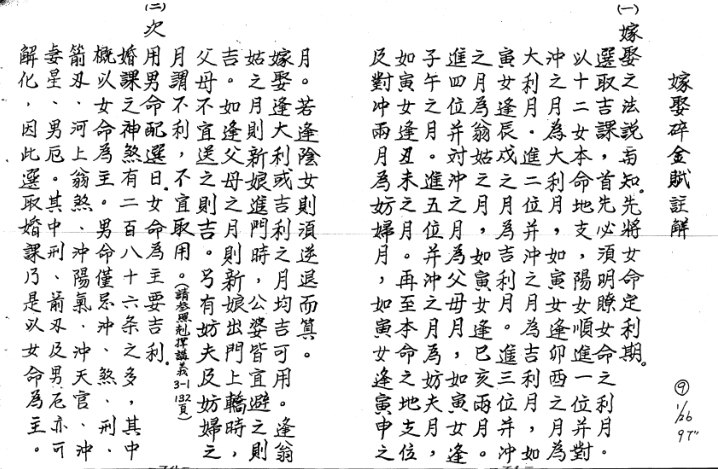 嫁娶碎金賦註解
⑨
1/26
(一)
嫁娶之法説与知。先將女命定利期。
選取吉課,首先必須明瞭女命之利月。
以十二女本命地支,陽女順進一位并對
沖之月為大利月,如寅女逢卯酉之月為
大利月。進二位并沖之月為吉利月,如
寅女逢辰戌之月為吉利月。進三位并沖
之月為翁姑之月,如寅女逢巳亥兩月。
進四位并対沖之月為父母月,如寅女逢
子午之月。進五位并沖之月為妨夫月,
如寅女逢丑未之月。再至本命之地支位
及對冲兩月為妨婦月,如寅女逢寅申之
月。若逢陰女則須逆退而算。
嫁娶逢大利或吉利之月均吉可用。逢翁
姑之月則新娘進門時,公婆皆宜避之則
吉。如逢父母之月則新娘出門上轎時,
父母不宜送之則吉。另有妨夫及妨婦之
月謂不利,不宜取用。(請參照剋擇講義3-1 132頁)
(二)
次用男命配選日。女命為主要吉利。
婚課之神煞有二百八十六条之多,其中
概以女命為主。男命僅忌沖、煞、刑、
箭刃、河上翁煞、沖陽氣、沖天官、沖
妻星、男厄。其中刑、箭刃及男厄亦可
解化,因此選取婚課乃是以女命為主。